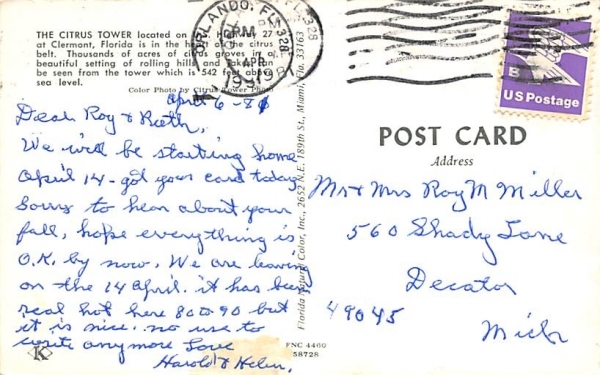 THE CITRUS TOWER located on U.S. HIGHWAY 27
at Clermont, Florida is in the heart of the citrus
belt. Thousands of acres of citrus groves in a
beautiful setting of rolling hills and lakes can
be seen from the tower which is 542 feet above
sea level.
Color Photo by Citrus Tower Photo
April 6-81
Dear Roy & Ruth,
We will be starting home
April 14 - got your card today
Sorry to hear about your
fall, hope everything is
O.K. by now. We are leaving
on the 14 April. it has been
real hot here 80 to 90 but
it is nice. no use to
write anymore Love
Harold & Helen.
K
FNC 4460
58728
Florida Natural Color, Inc., 2652 N.E. 189th St., Miami, Fla. 33163
ORLANDO, FL 328
PM
APR
1981
328
B
US Postage
POST CARD
Address
Mr & Mrs Roy M Miller
560 Shady Lane
Decator
49045
Mich